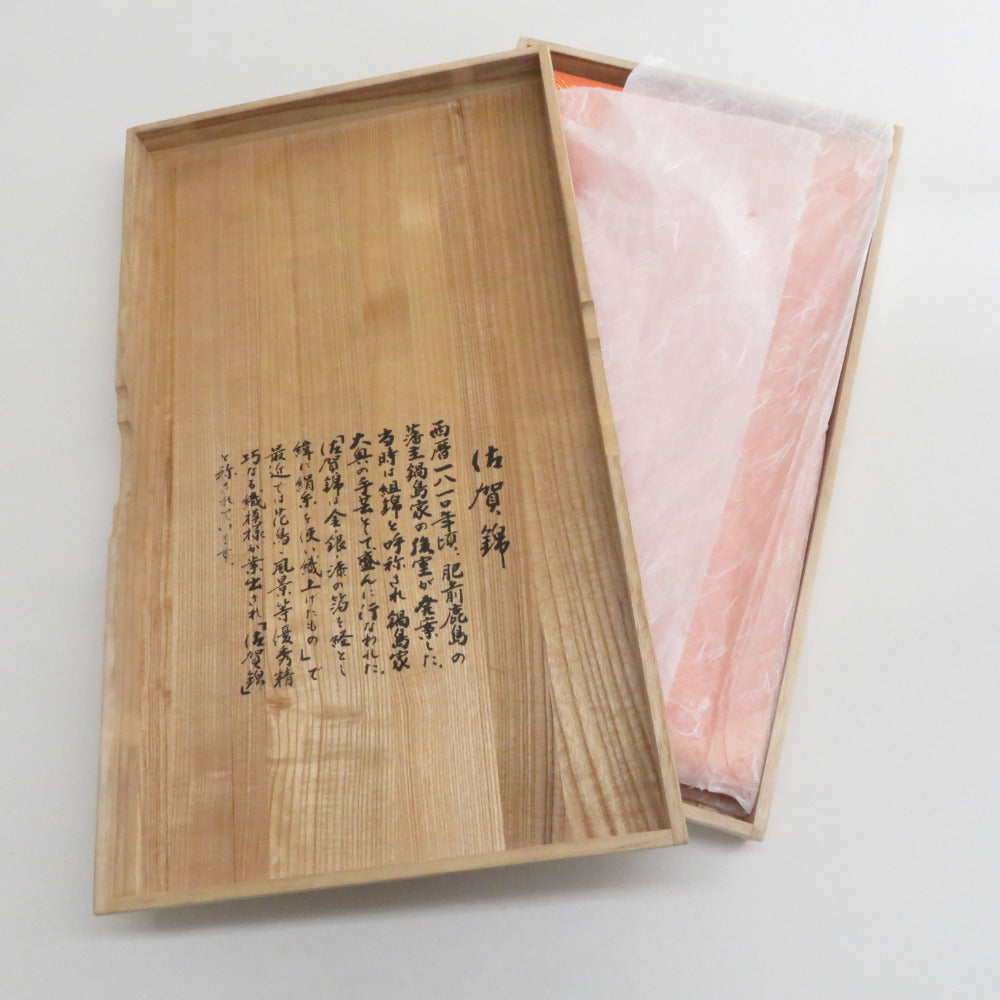 佐賀錦
西暦一八一〇年頃、肥前鹿島の
藩主鍋島家の後室が発案した、
当時は組錦と呼称され鍋島家
大奥の手芸として盛んに行なわれた、
「佐賀錦は金・銀・漆の箔を経とし
緯に絹糸を使い織上げたもの」で
最近では花鳥・風景等優秀精
巧なる織模様が案出され「佐賀錦」
と称されています。